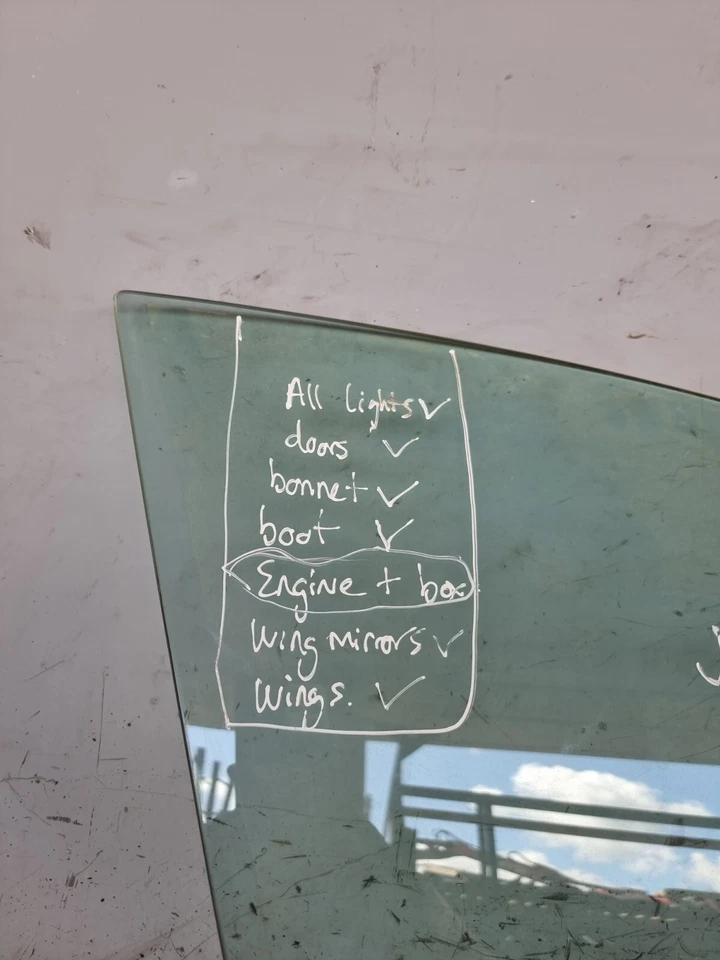 All Lights ✓
doors ✓
bonnet ✓
boot ✓
Engine + box
Wing mirrors ✓
Wings. ✓